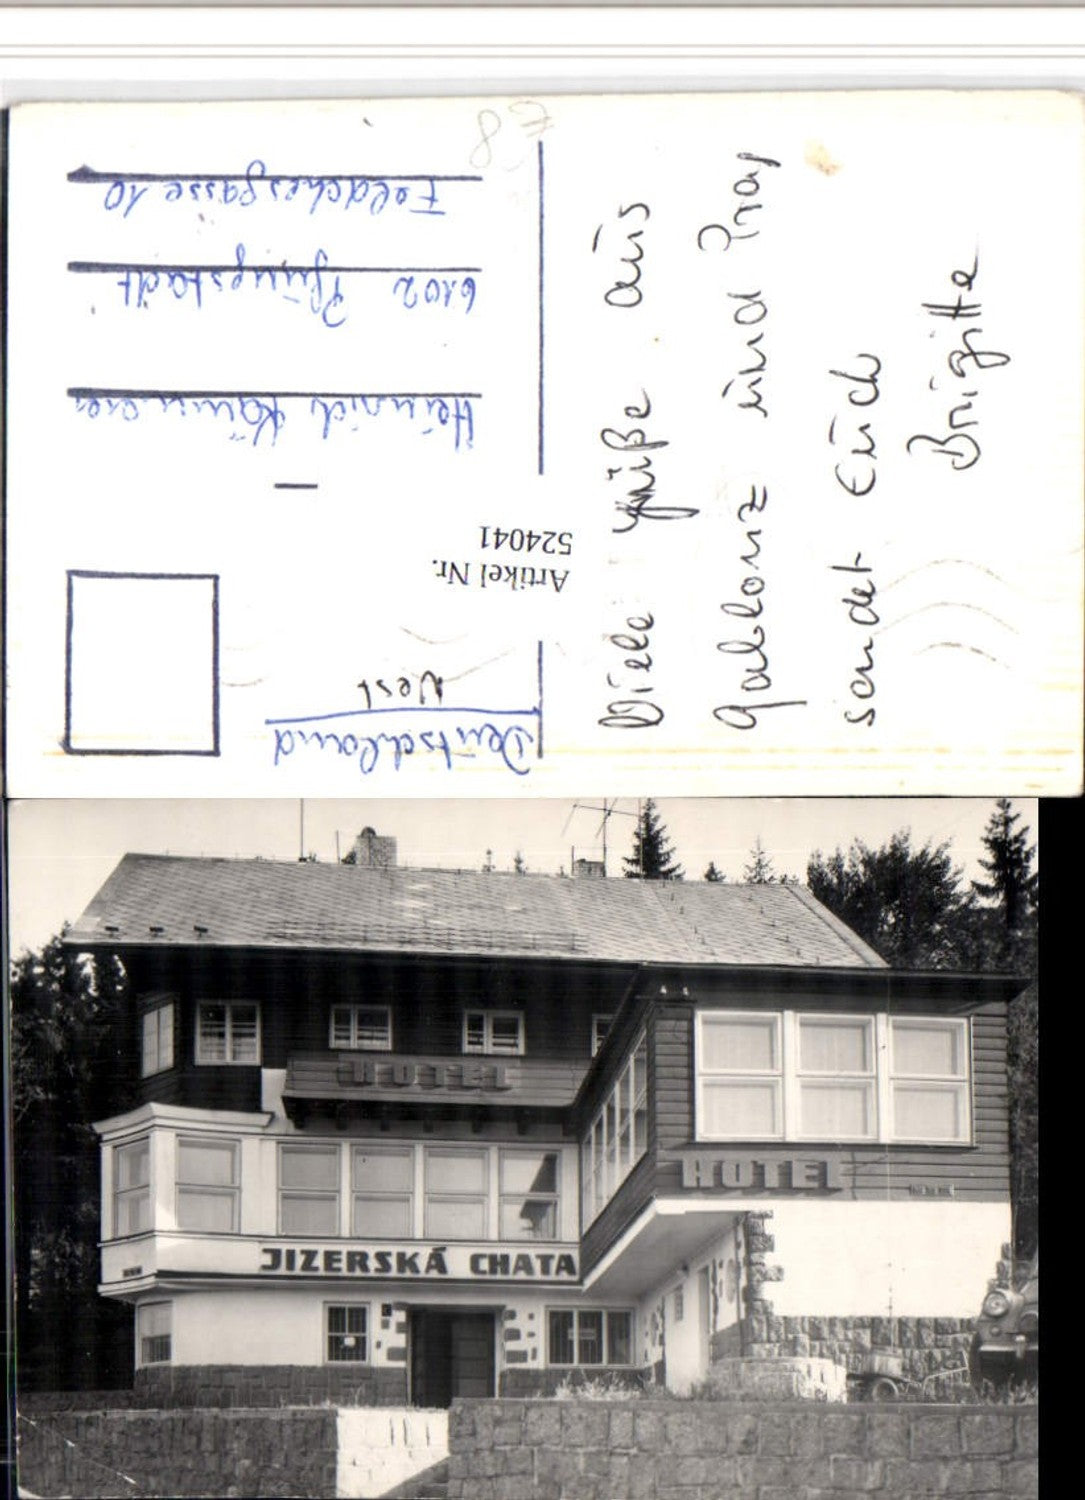 Viele Grüße aus
Gablonz und Prag
sendet Euch
Brigitte
Deutschland
West
Artikel Nr.
524041
Heinrich Kämmerer
6102 Pfungstadt
10
€ 8
HOTEL
HOTEL
JIZERSKÁ CHATA